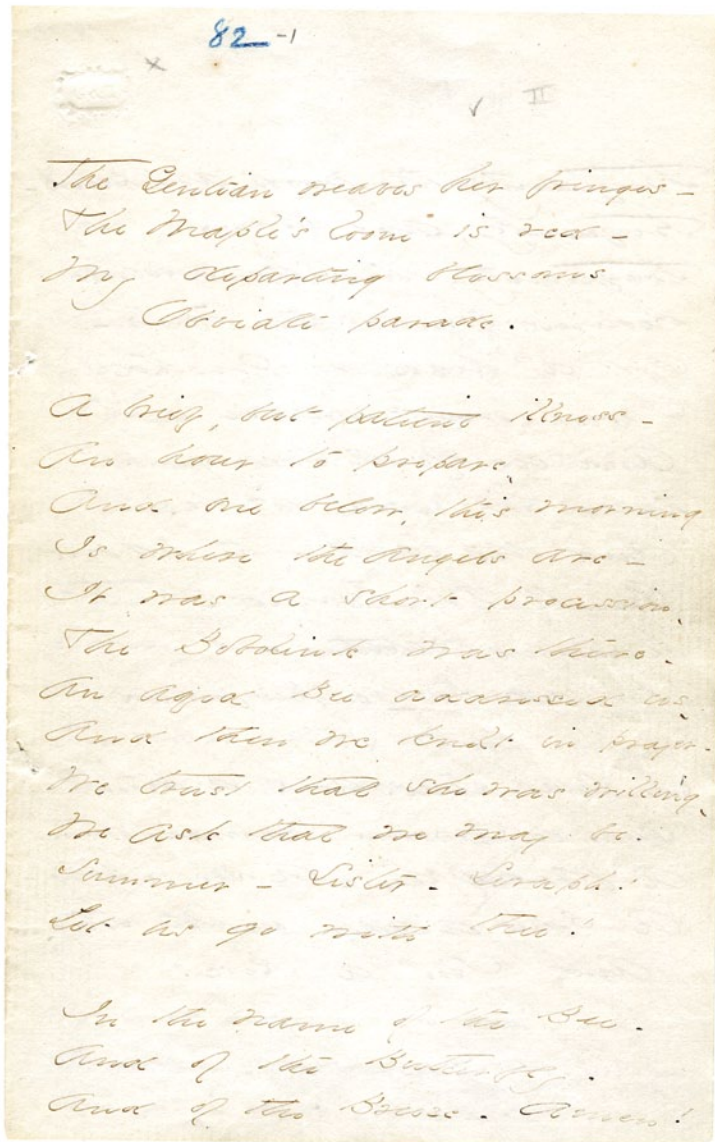 82 -1
x
✓ II
The Gentian weaves her fringes -
The Maple's loom is red -
My departing blossoms
Obviate parade.
A brief, but patient illness -
An hour to prepare,
And one below, this morning
Is where the angels are -
It was a short procession,
The Bobolink was there -
An aged Bee addressed us,
And then we knelt in prayer -
We trust that she was willing,
We ask that we may be.
Summer - Sister - Seraph!
Let us go with thee!
In the name of the Bee -
And of the Butterfly -
And of the Breeze - Amen!